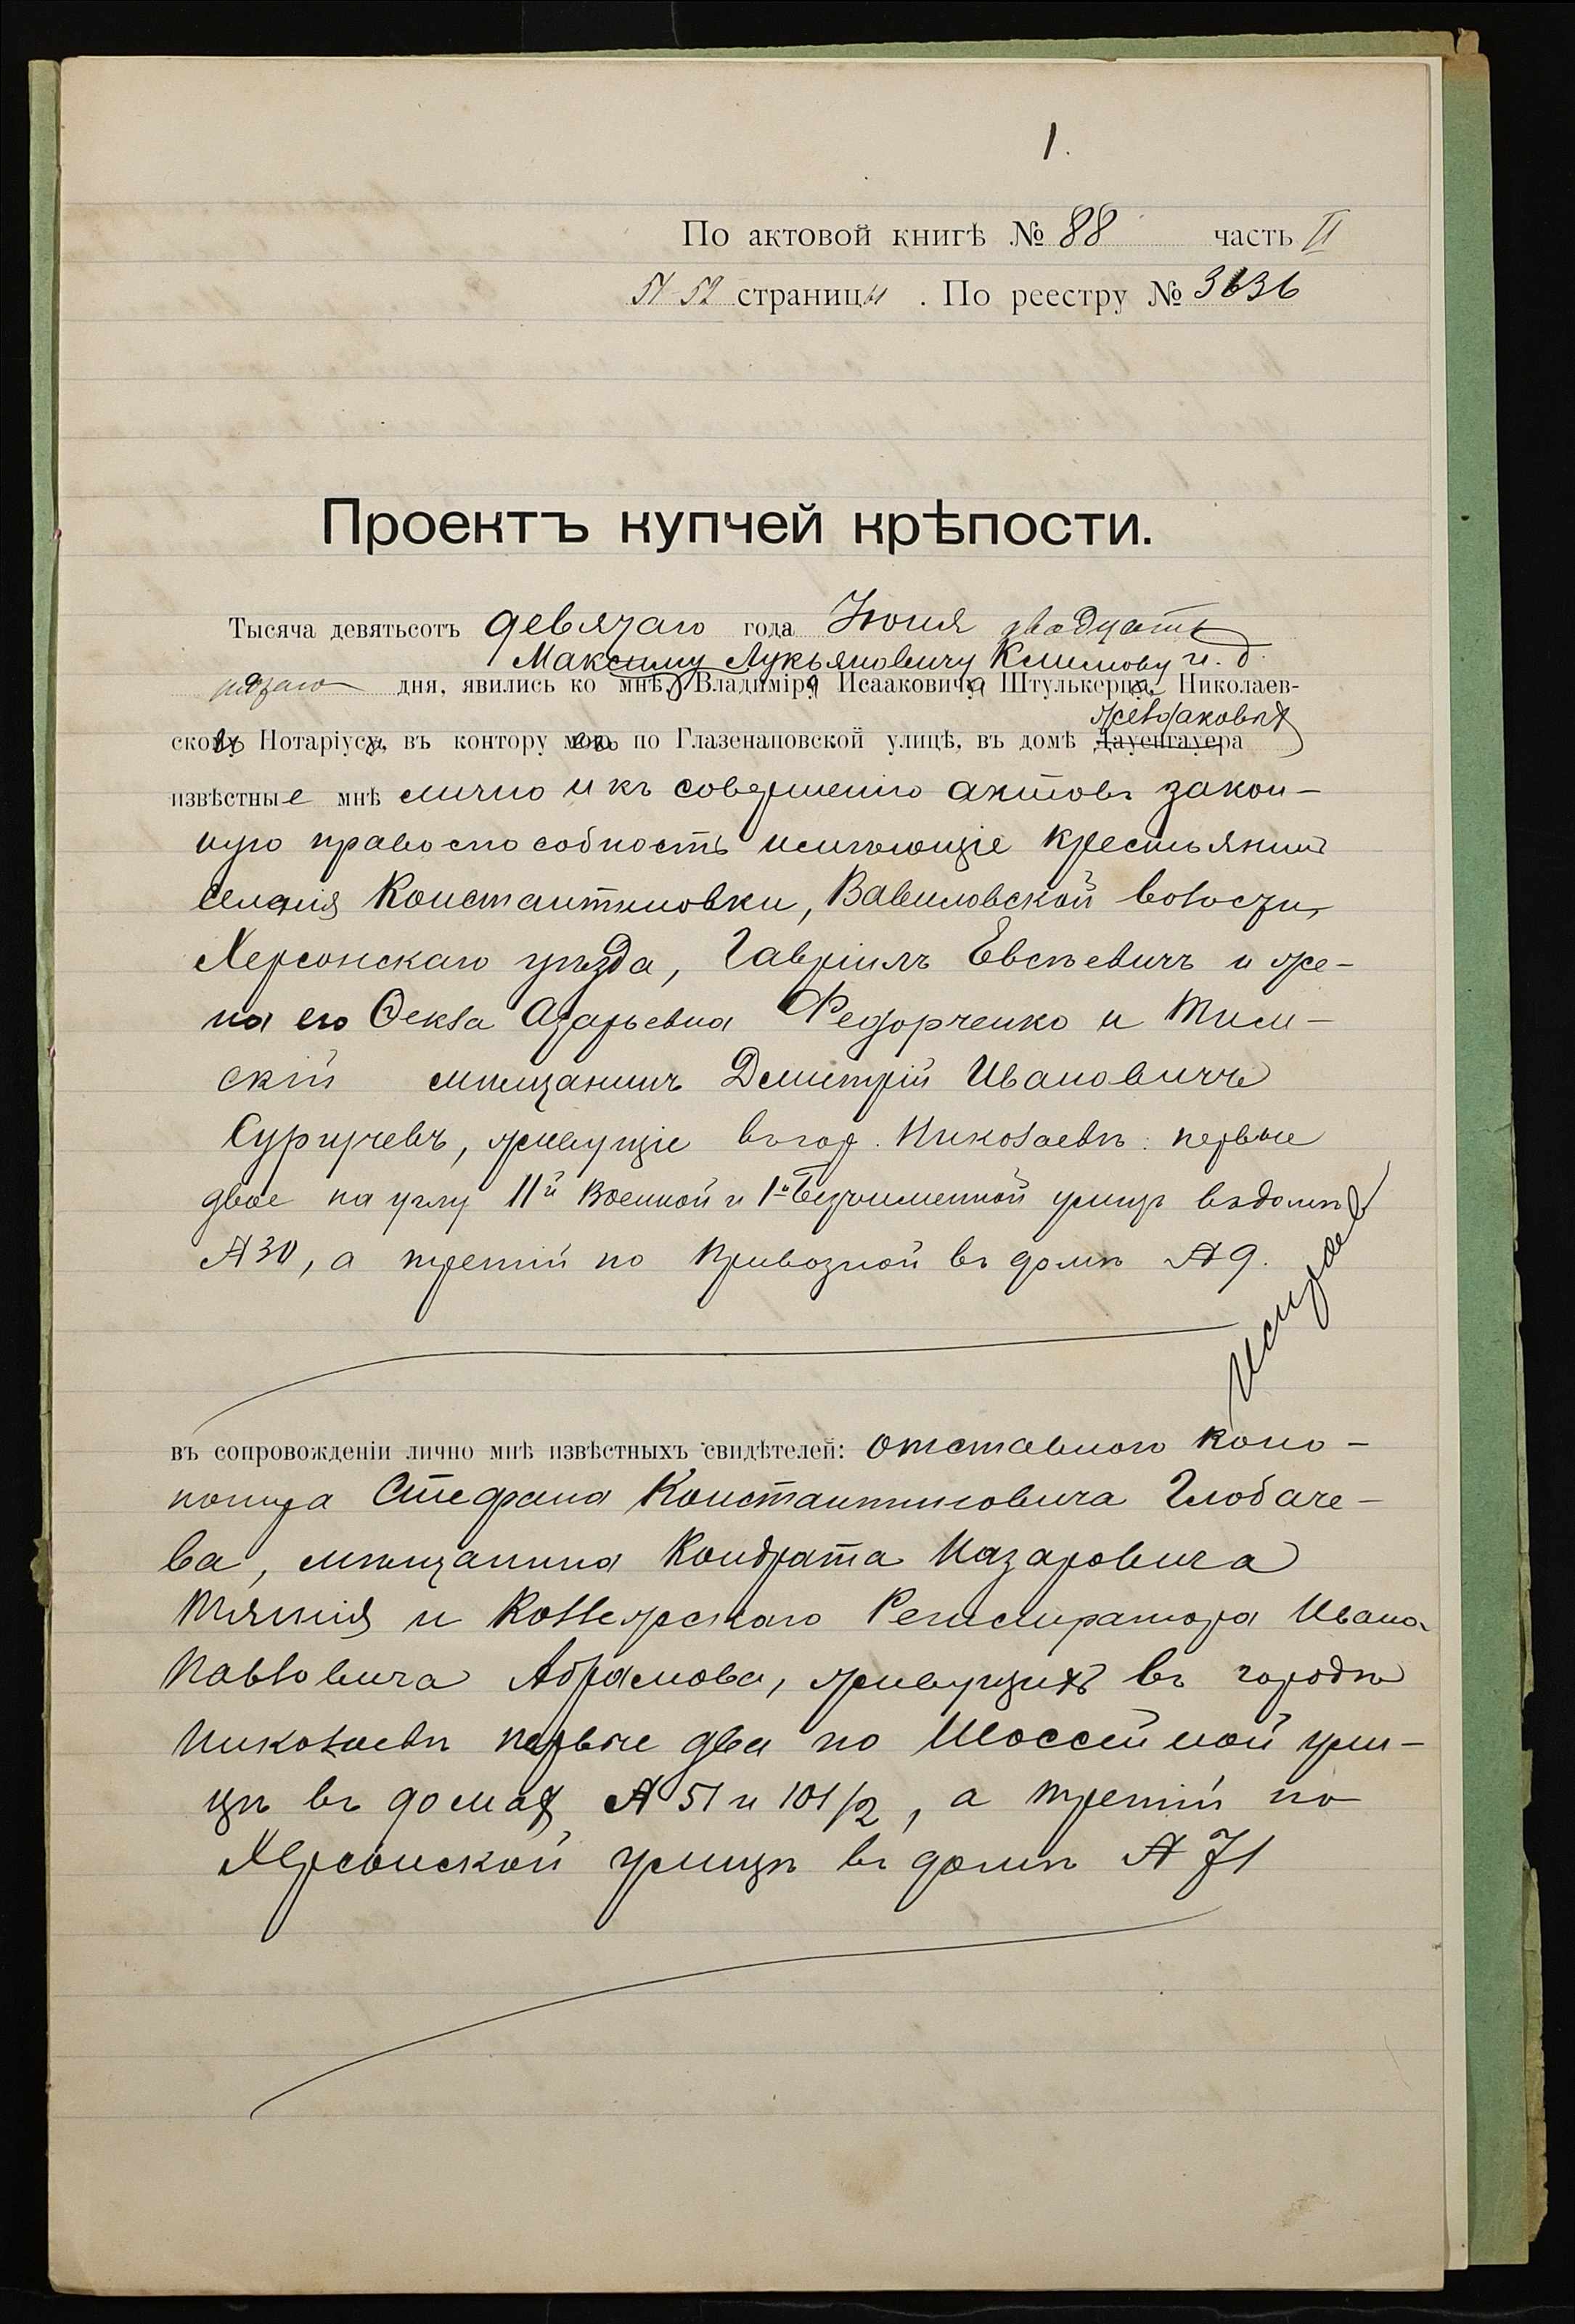 1.
По актовой книгѣ № 88 часть II
51-52 страницы . По реестру № 3636
Проектъ купчей крѣпости.
Тысяча девятьсотъ девятаго года Іюня двадцать
Максиму Лукьяновичу Климову и. д.
пятаго дня, явились ко мнѣ, Владиміра Исааковича Штулькерца, Николаев-
скаго Нотаріуса, въ контору его по Глазенаповской улицѣ, въ домѣ Дауенгауера
извѣстные мнѣ лично и къ совершенію актовъ закон-
ную правоспособность имѣющіе крестьянинъ
селенія Константиновки, Вавиловской волости,
Херсонскаго уѣзда, Гавріилъ Евсѣевичъ и же-
на его Ѳекла Азарьевна Федорченко и
скій мѣщанинъ Дмитрій Ивановичъ
Суручевъ, живущіе въ гор. Николаевѣ: первые
двое на углу 11й Военной и 1й Безъименной улицъ въ домѣ
№ 30, а третій по Привозной въ домѣ № 9.
въ сопровожденіи лично мнѣ извѣстныхъ свидѣтелей: отставного коно-
Стефана Константиновича Глобаче-
ва, мѣщанина Кондрата Назаровича
и Коллежскаго Регистратора Ивана
Павловича Абрамова, живущихъ въ городѣ
Николаевѣ первые два по Шоссейной ули-
цѣ въ домах № 51 и 101/2, а третій по
Херсонской улицѣ въ домѣ № 71